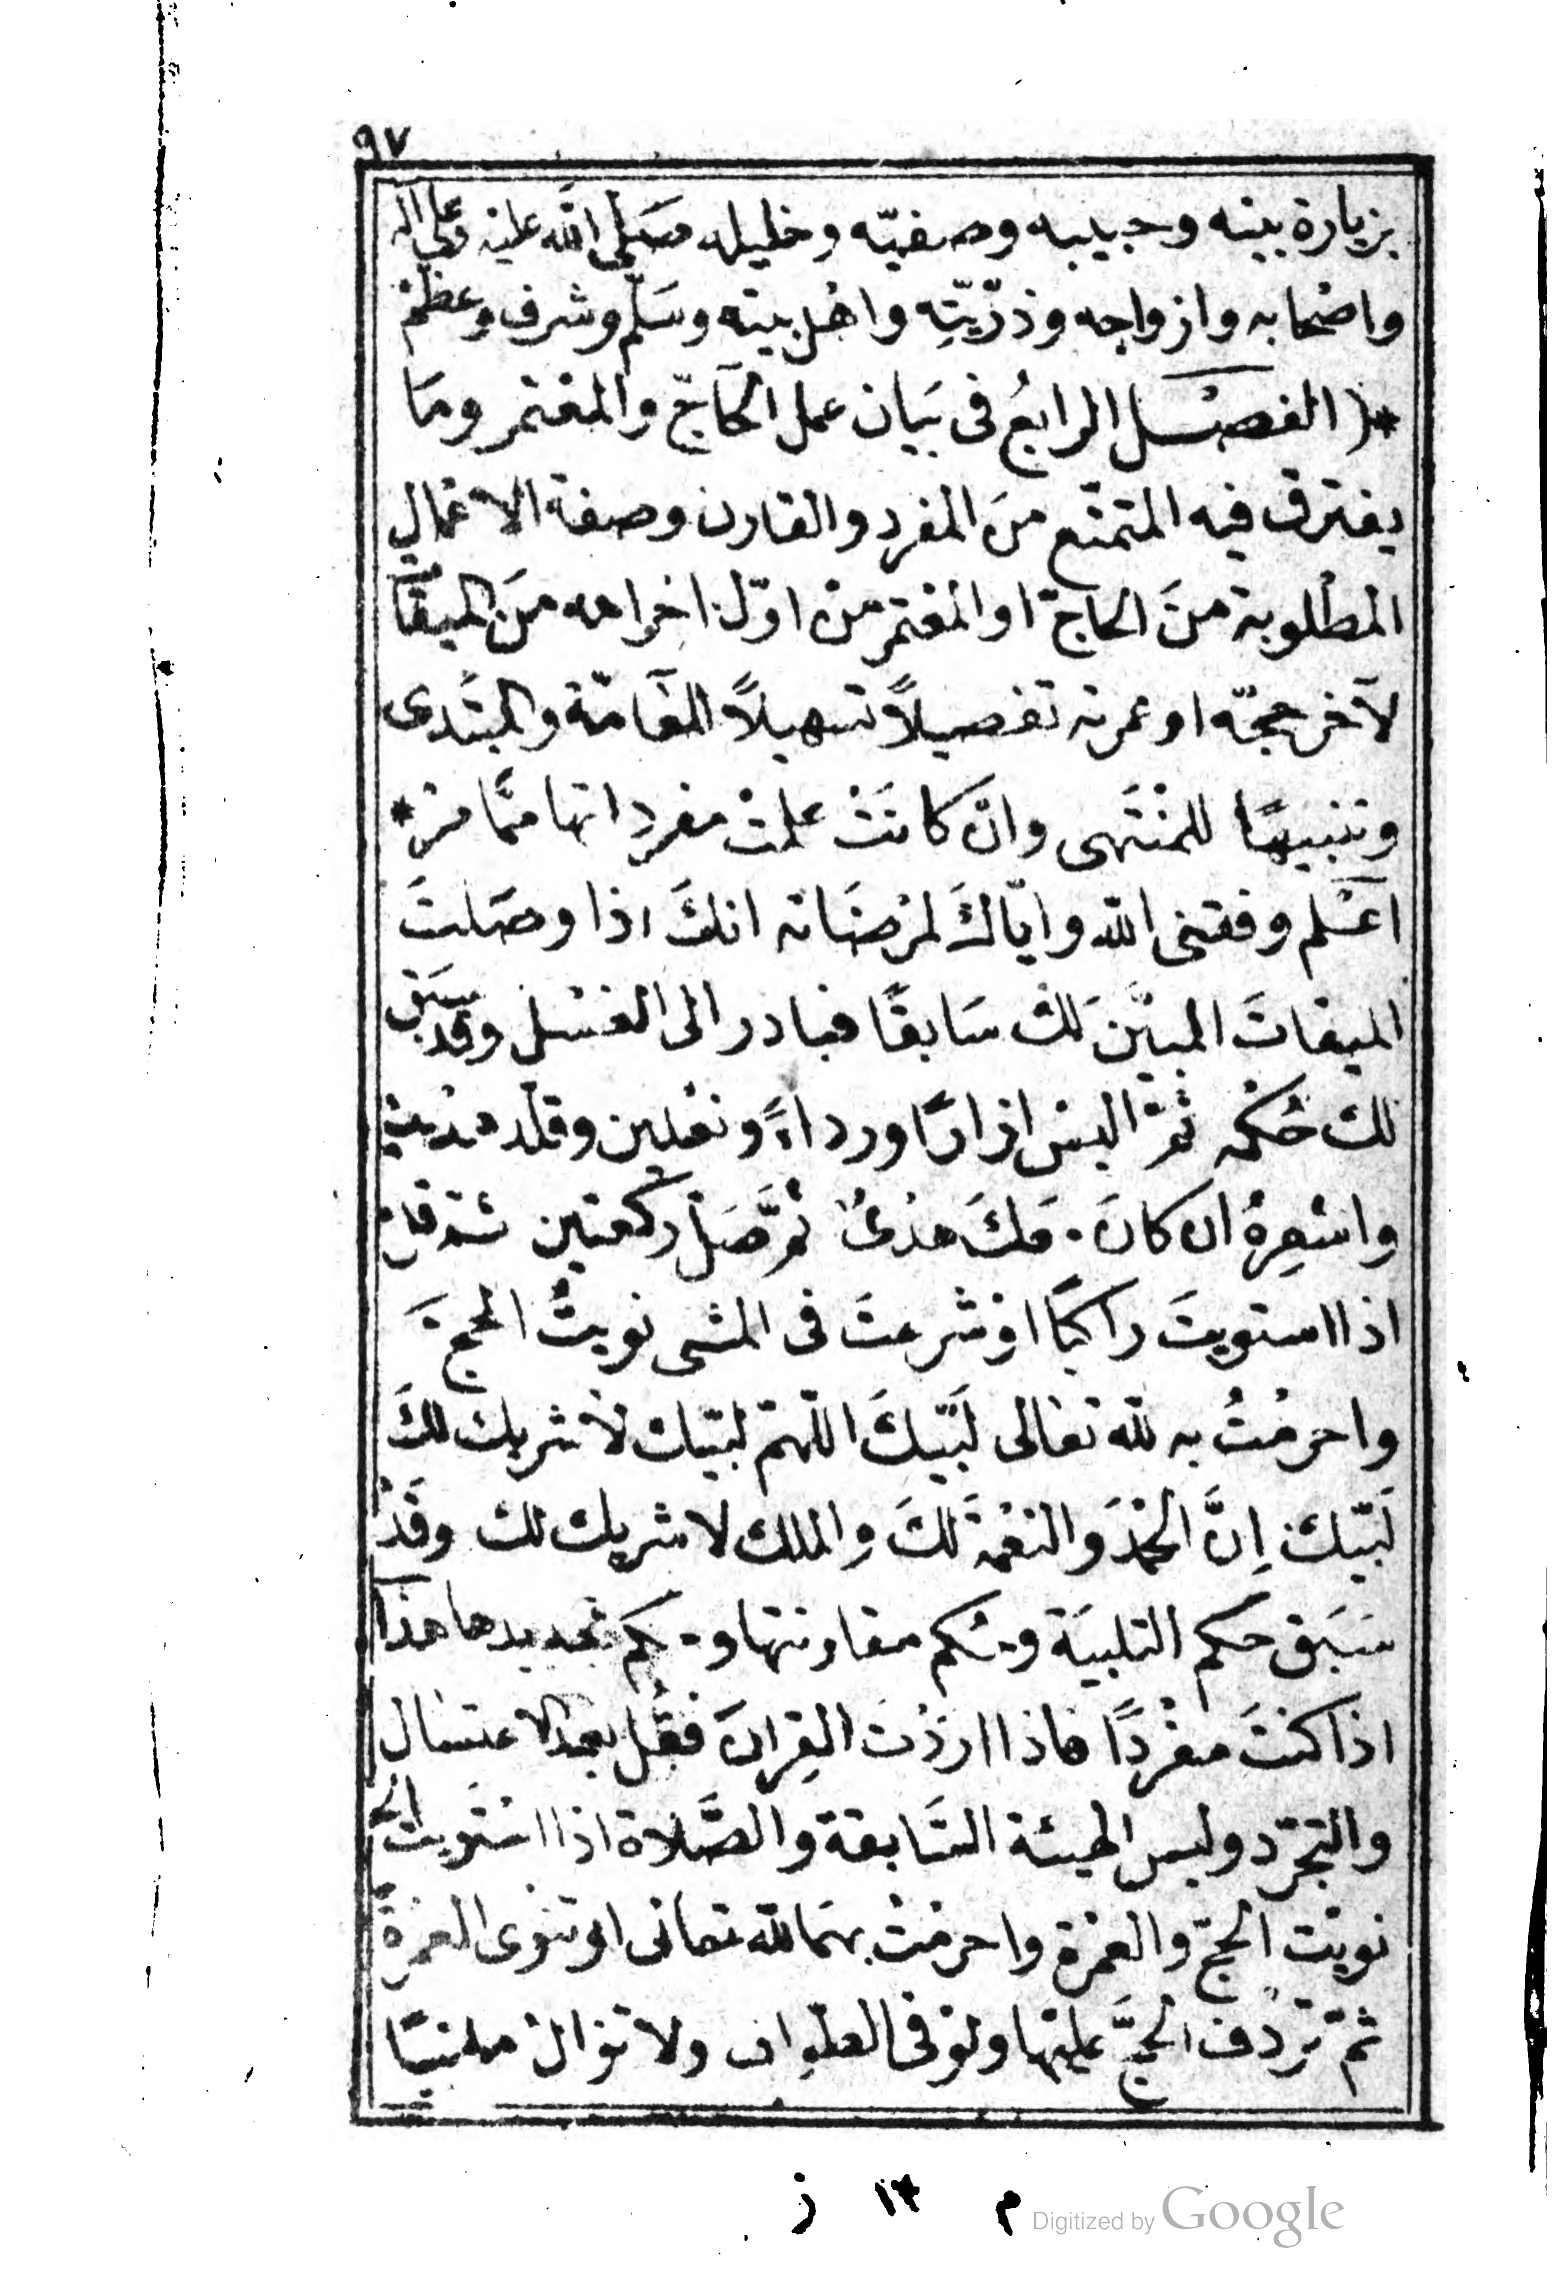 ٩٧
بزيارة بيته وحبيبه وصفيّه وخليله صَلى الله عليه وعلى اله
واصْحابه وازواجه وذرّيّتِه واهْل بيته وسَلّم وشرف وعظمْ
*( الفصْل الرابعُ فى بَيان عمل الحَآجّ والمعْتمر ومَا
يفترق فيه المتمتّع منَ المفردِ والقارن وصفة الاعْمالِ
المطلوبة منَ الحاجّ او المعْتمر منْ اوّل احْرامه منَ الميقات
لآخر حجّه او عمرته تفصيلاً تسهيلاً للعَامّة والمبتَدى
وتنبيهًا للمنْتَهى وانْ كانَتْ علمتْ مفرداتها ممّا مرّ *
اعْلم وفقنى الله وايّاكَ لمرْضَاته انكَ اذا وصَلتَ
الميقاتَ المبيّنَ لكَ سَابقًا فبادر الى الغسْل وقد سَبَق
لك حُكْمه ثمّ البسْ ازارًا ورداءً ونعْلين وقلّد هدْيك
واشعِرهُ ان كانَ مَعَكَ هدْىٌ ثمَّ صَلّ ركعتين ثمّ قلْ
اذا استويتَ راكبًا اوْ شرعتَ فى المشى نويتُ الحجّ
واحرمْتُ به لله تعالى لَبّيكَ اللّهمّ لبّيك لاَ شريك لكَ
لَبّيك إنَّ الحمْدَ والنعْمةَ لكَ والملك لا شريك لك وقَدْ
سَبَق حكم التلبيَة وحُكم مقارنتها وحكم تجديدها هذا
اذا كنتَ مفْردًا فاذا اردْتَ القِران فقُل بعد الاغتسَال
والتجرّد ولبس الهيئة السَّابقة والصَّلاة اذا اسْتَويت الخ
نويْت الحجّ والعمْرة واحرمْتُ بهمَا لله تعالى او تنْوى العمْرةَ
ثمّ تردف الحجَّ عليْها ولوْ فى الطّواف ولا تزالْ ملبّيًا
م ١٣ ز
Digitized by Google